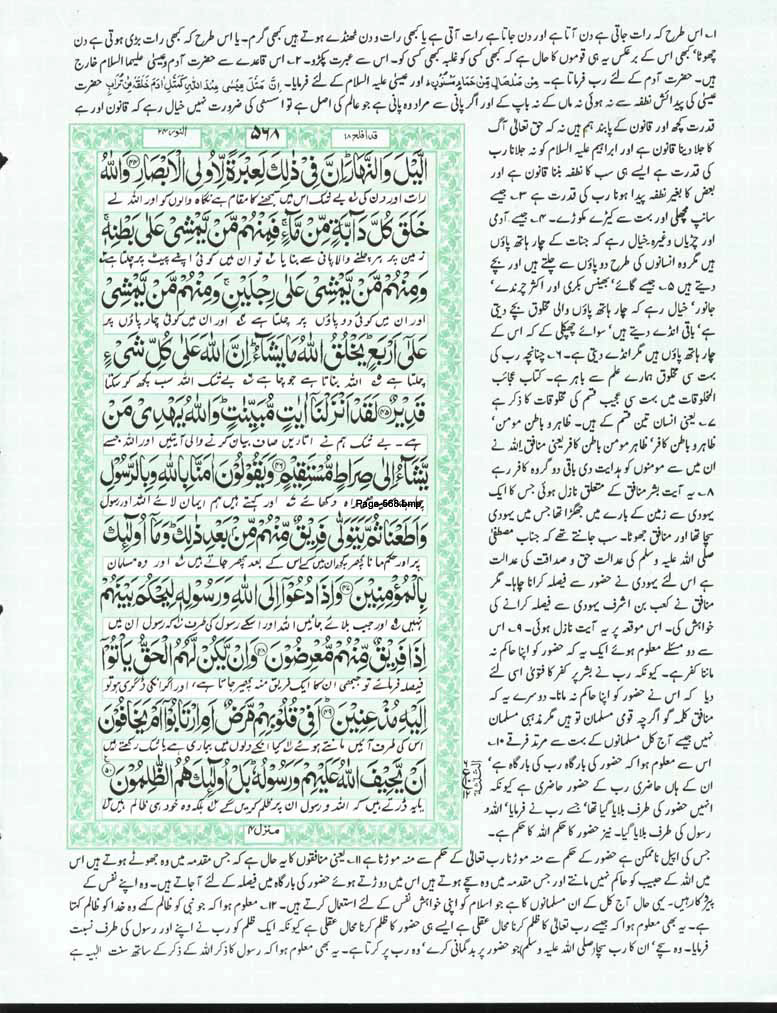 ۱؎ اس طرح کہ رات جاتی ہے دن آتا ہے اور دن جاتا ہے رات آتی ہے یا کبھی رات و دن ٹھنڈے ہوتے ہیں کبھی گرم۔ یا اس طرح کہ کبھی رات بڑی ہوتی ہے دن
چھوٹا' کبھی اس کے برعکس یہ ہی قوموں کا حال ہے کہ کبھی کسی کو غلبہ کبھی کسی کو۔ اس سے عبرت پکڑو۔ ۲؎ اس قاعدے سے حضرت آدم و عیسیٰ علیہما السلام خارج
ہیں۔ حضرت آدم کے لئے رب فرماتا ہے۔ مِنْ صَلْصَالٍ مِّنْ حَمَاٍ مَّسْنُوْنٍ اور عیسیٰ علیہ السلام کے لئے فرمایا۔ اِنَّ مَثَلَ عِیْسٰی عِنْدَ اللّٰہِ کَمَثَلِ اٰدَمَ خَلَقَہٗ مِنْ تُرَابٍ حضرت
عیسیٰ کی پیدائش نطفہ سے نہ ہوئی نہ ماں کے نہ باپ کے اور اگر پانی سے مراد وہ پانی ہے جو عالم کی اصل ہے تو استثنیٰ کی ضرورت نہیں خیال رہے کہ قانون اور ہے
قدرت کچھ اور قانون کے پابند ہم ہیں نہ کہ حق تعالیٰ آگ
کا جلا دینا قانون ہے اور ابراہیم علیہ السلام کو نہ جلانا رب
کی قدرت ہے ایسے ہی سب کا نطفہ بننا قانون ہے اور
بعض کا بغیر نطفہ پیدا ہونا رب کی قدرت ہے ۳؎ جیسے
سانپ مچھلی اور بہت سے کیڑے مکوڑے۔ ۴؎ جیسے آدمی
اور چڑیاں وغیرہ خیال رہے کہ جنات کے چار ہاتھ پاؤں
ہیں مگر وہ انسانوں کی طرح دو پاؤں سے چلتے ہیں اور بچے
دیتے ہیں ۵؎ جیسے گائے' بھینس بکری اور اکثر چرندے'
جانور' خیال رہے کہ چار ہاتھ پاؤں والی مخلوق بچے دیتی
ہے' باقی انڈے دیتے ہیں' سوائے چھپکلی کے کہ اس کے
چار ہاتھ پاؤں ہیں مگر انڈے دیتی ہے۔ ۶؎ چنانچہ رب کی
بہت سی مخلوق ہمارے علم سے باہر ہے۔ کتاب عجائب
المخلوقات میں بہت سی عجیب قسم کی مخلوقات کا ذکر ہے
۷؎ یعنی انسان تین قسم کے ہیں۔ ظاہر و باطن مومن'
ظاہر و باطن کافر' ظاہر مومن باطن کافر یعنی منافق اللہ نے
ان میں سے مومنوں کو ہدایت دی باقی دو گروہ کافر رہے
۸؎ یہ آیت بشر منافق کے متعلق نازل ہوئی جس کا ایک
یہودی سے زمین کے بارے میں جھگڑا تھا جس میں یہودی
سچا تھا اور منافق جھوٹا۔ سب جانتے تھے کہ جناب مصطفیٰ
صلی اللہ علیہ وسلم کی عدالت حق و صداقت کی عدالت
ہے اس لئے یہودی نے حضور سے فیصلہ کرانا چاہا۔ مگر
منافق نے کعب بن اشرف یہودی سے فیصلہ کرانے کی
خواہش کی۔ اس موقعہ پر یہ آیت نازل ہوئی۔ ۹؎ اس
سے دو مسئلے معلوم ہوئے ایک یہ کہ حضور کو اپنا حاکم نہ
ماننا کفر ہے۔ کیونکہ رب نے بشر پر کفر کا فتویٰ اسی لئے
دیا کہ اس نے حضور کو اپنا حاکم نہ مانا۔ دوسرے یہ کہ
منافق کلمہ گو اگرچہ قومی مسلمان تو ہیں مگر مذہبی مسلمان
نہیں جیسے آج کل مسلمانوں کے بہت سے مرتد فرقے ۱۰؎
اس سے معلوم ہوا کہ حضور کی بارگاہ رب کی بارگاہ ہے'
ان کے ہاں حاضری رب کے حضور حاضری ہے کیونکہ
انہیں حضور کی طرف بلایا گیا تھا' جسے رب نے فرمایا' اللہ و
رسول کی طرف بلایا گیا۔ نیز حضور کا حکم اللہ کا حکم ہے۔
قد افلح ۱۸
۵۶۸
النور ۲۴
الَّیْلَ وَالنَّهَارَ ؕ اِنَّ فِیْ ذٰلِكَ لَعِبْرَةً لِّاُولِی الْاَبْصَارِ ﴿۴۴﴾ وَاللّٰهُ
رات اور دن کی بے شک اس میں سمجھنے کا مقام ہے نگاہ والوں کو اور اللہ نے
خَلَقَ كُلَّ دَآبَّةٍ مِّنْ مَّآءٍ ۚ فَمِنْهُمْ مَّنْ یَّمْشِیْ عَلٰی بَطْنِهٖ ۚ
زمین پر ہر چلنے والا پانی سے بنایا تو ان میں کوئی اپنے پیٹ پر چلتا ہے
وَمِنْهُمْ مَّنْ یَّمْشِیْ عَلٰی رِجْلَیْنِ ۚ وَمِنْهُمْ مَّنْ یَّمْشِیْ
اور ان میں کوئی دو پاؤں پر چلتا ہے اور ان میں کوئی چار پاؤں پر
عَلٰۤی اَرْبَعٍ ؕ یَخْلُقُ اللّٰهُ مَا یَشَآءُ ؕ اِنَّ اللّٰهَ عَلٰی كُلِّ شَیْءٍ
چلتا ہے اللہ بناتا ہے جو چاہے بے شک اللہ سب کچھ کر سکتا
قَدِیْرٌ ﴿۴۵﴾ لَقَدْ اَنْزَلْنَاۤ اٰیٰتٍ مُّبَیِّنٰتٍ ؕ وَاللّٰهُ یَهْدِیْ مَنْ
ہے۔ بے شک ہم نے اتاریں صاف بیان کرنے والی آیتیں اور اللہ جسے
یَّشَآءُ اِلٰی صِرَاطٍ مُّسْتَقِیْمٍ ﴿۴۶﴾ وَیَقُوْلُوْنَ اٰمَنَّا بِاللّٰهِ وَبِالرَّسُوْلِ
راہ دکھائے اور کہتے ہیں ہم ایمان لائے اللہ اور رسول
Page-568.bmp
وَاَطَعْنَا ثُمَّ یَتَوَلّٰی فَرِیْقٌ مِّنْهُمْ مِّنْۢ بَعْدِ ذٰلِكَ ؕ وَمَاۤ اُولٰٓئِكَ
پر اور حکم مانا پھر کچھ ان میں کے اس کے بعد پھر جاتے ہیں اور وہ مسلمان
بِالْمُؤْمِنِیْنَ ﴿۴۷﴾ وَاِذَا دُعُوْۤا اِلَی اللّٰهِ وَرَسُوْلِهٖ لِیَحْكُمَ بَیْنَهُمْ
نہیں اور جب بلائے جائیں اللہ اور اسکے رسول کی طرف کہ رسول ان میں
اِذَا فَرِیْقٌ مِّنْهُمْ مُّعْرِضُوْنَ ﴿۴۸﴾ وَاِنْ یَّكُنْ لَّهُمُ الْحَقُّ یَاْتُوْۤا
فیصلہ فرمائے تو جبھی ان کا ایک فریق منہ پھیر جاتا ہے، اور اگر انکی ڈگری ہو تو
اِلَیْهِ مُذْعِنِیْنَ ﴿۴۹﴾ اَفِیْ قُلُوْبِهِمْ مَّرَضٌ اَمِ ارْتَابُوْۤا اَمْ یَخَافُوْنَ
اس کی طرف آئیں مانتے ہوئے کیا انکے دلوں میں بیماری ہے یا شک رکھتے ہیں
اَنْ یَّحِیْفَ اللّٰهُ عَلَیْهِمْ وَرَسُوْلُهٗ ؕ بَلْ اُولٰٓئِكَ هُمُ الظّٰلِمُوْنَ ﴿۵۰﴾
یا یہ ڈرتے ہیں کہ اللہ و رسول ان پر ظلم کریں گے بلکہ وہ خود ہی ظالم ہیں
منزل ۴
جس کی اپیل ناممکن ہے حضور کے حکم سے منہ موڑنا رب تعالیٰ کے حکم سے منہ موڑنا ہے ۱۱؎ یعنی منافقوں کا یہ حال ہے کہ جس مقدمہ میں وہ جھوٹے ہوتے ہیں اس
میں اللہ کے حبیب کو حاکم نہیں مانتے اور جس مقدمہ میں وہ سچے ہوتے ہیں اس میں دوڑتے ہوئے حضور کی بارگاہ میں فیصلہ کے لئے آ جاتے ہیں۔ وہ اپنے نفس کے
پیروکار ہیں۔ یہی حال آج کل کے ان مسلمانوں کا ہے جو اسلام کو اپنی خواہش نفس کے لئے استعمال کرتے ہیں۔ ۱۲؎ معلوم ہوا کہ جو نبی کو ظالم کہے وہ خدا کو ظالم کہتا
ہے۔ یہ بھی معلوم ہوا کہ جیسے رب تعالیٰ کا ظلم کرنا محال عقلی ہے ایسے ہی حضور کا ظلم کرنا محال عقلی ہے کیونکہ ایک ظلم کو رب نے اپنے اور رسول کی طرف نسبت
فرمایا۔ وہ سچے' ان کا رب سچا (صلی اللہ علیہ وسلم) جو حضور پر بدگمانی کرے' وہ رب پر کرتا ہے۔ یہ بھی معلوم ہوا کہ رسول کا ذکر اللہ کے ذکر کے ساتھ سنت الٰہیہ ہے